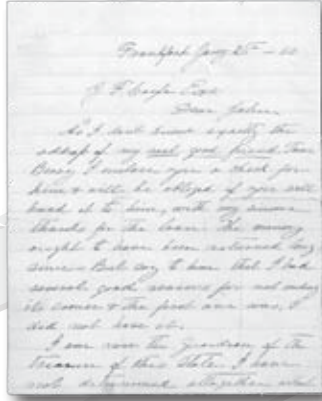 Frankfort Jany 25th
Dear John
As I dont know exactly the
address of my real good friend Tom
I enclose you a check for
him & will be obliged if you will
hand it to him, with my sincere
thanks for the loan. The money
ought to have been returned long
since & But say to him that I had
several good reasons for not making
it sooner & the first one was, I
did not have it.
I am now the guardian of the
treasure of this State. I have
not determined altogether what